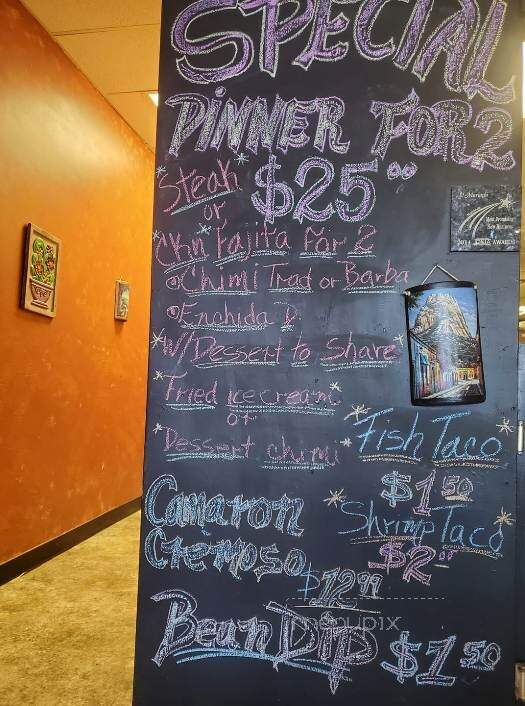 SPECIAL
DINNER FOR 2
$25.00
Steak
or
Ckn Fajita For 2
Chimi Trad or Barba
Enchida D.
W/Dessert to Share
Fried Ice cream
or
Dessert chimi
Fish Taco
$1 50
Shrimp Taco
$2 00
Camaron
Cremoso
$12 99
Bean Dip
$1 50
menupix